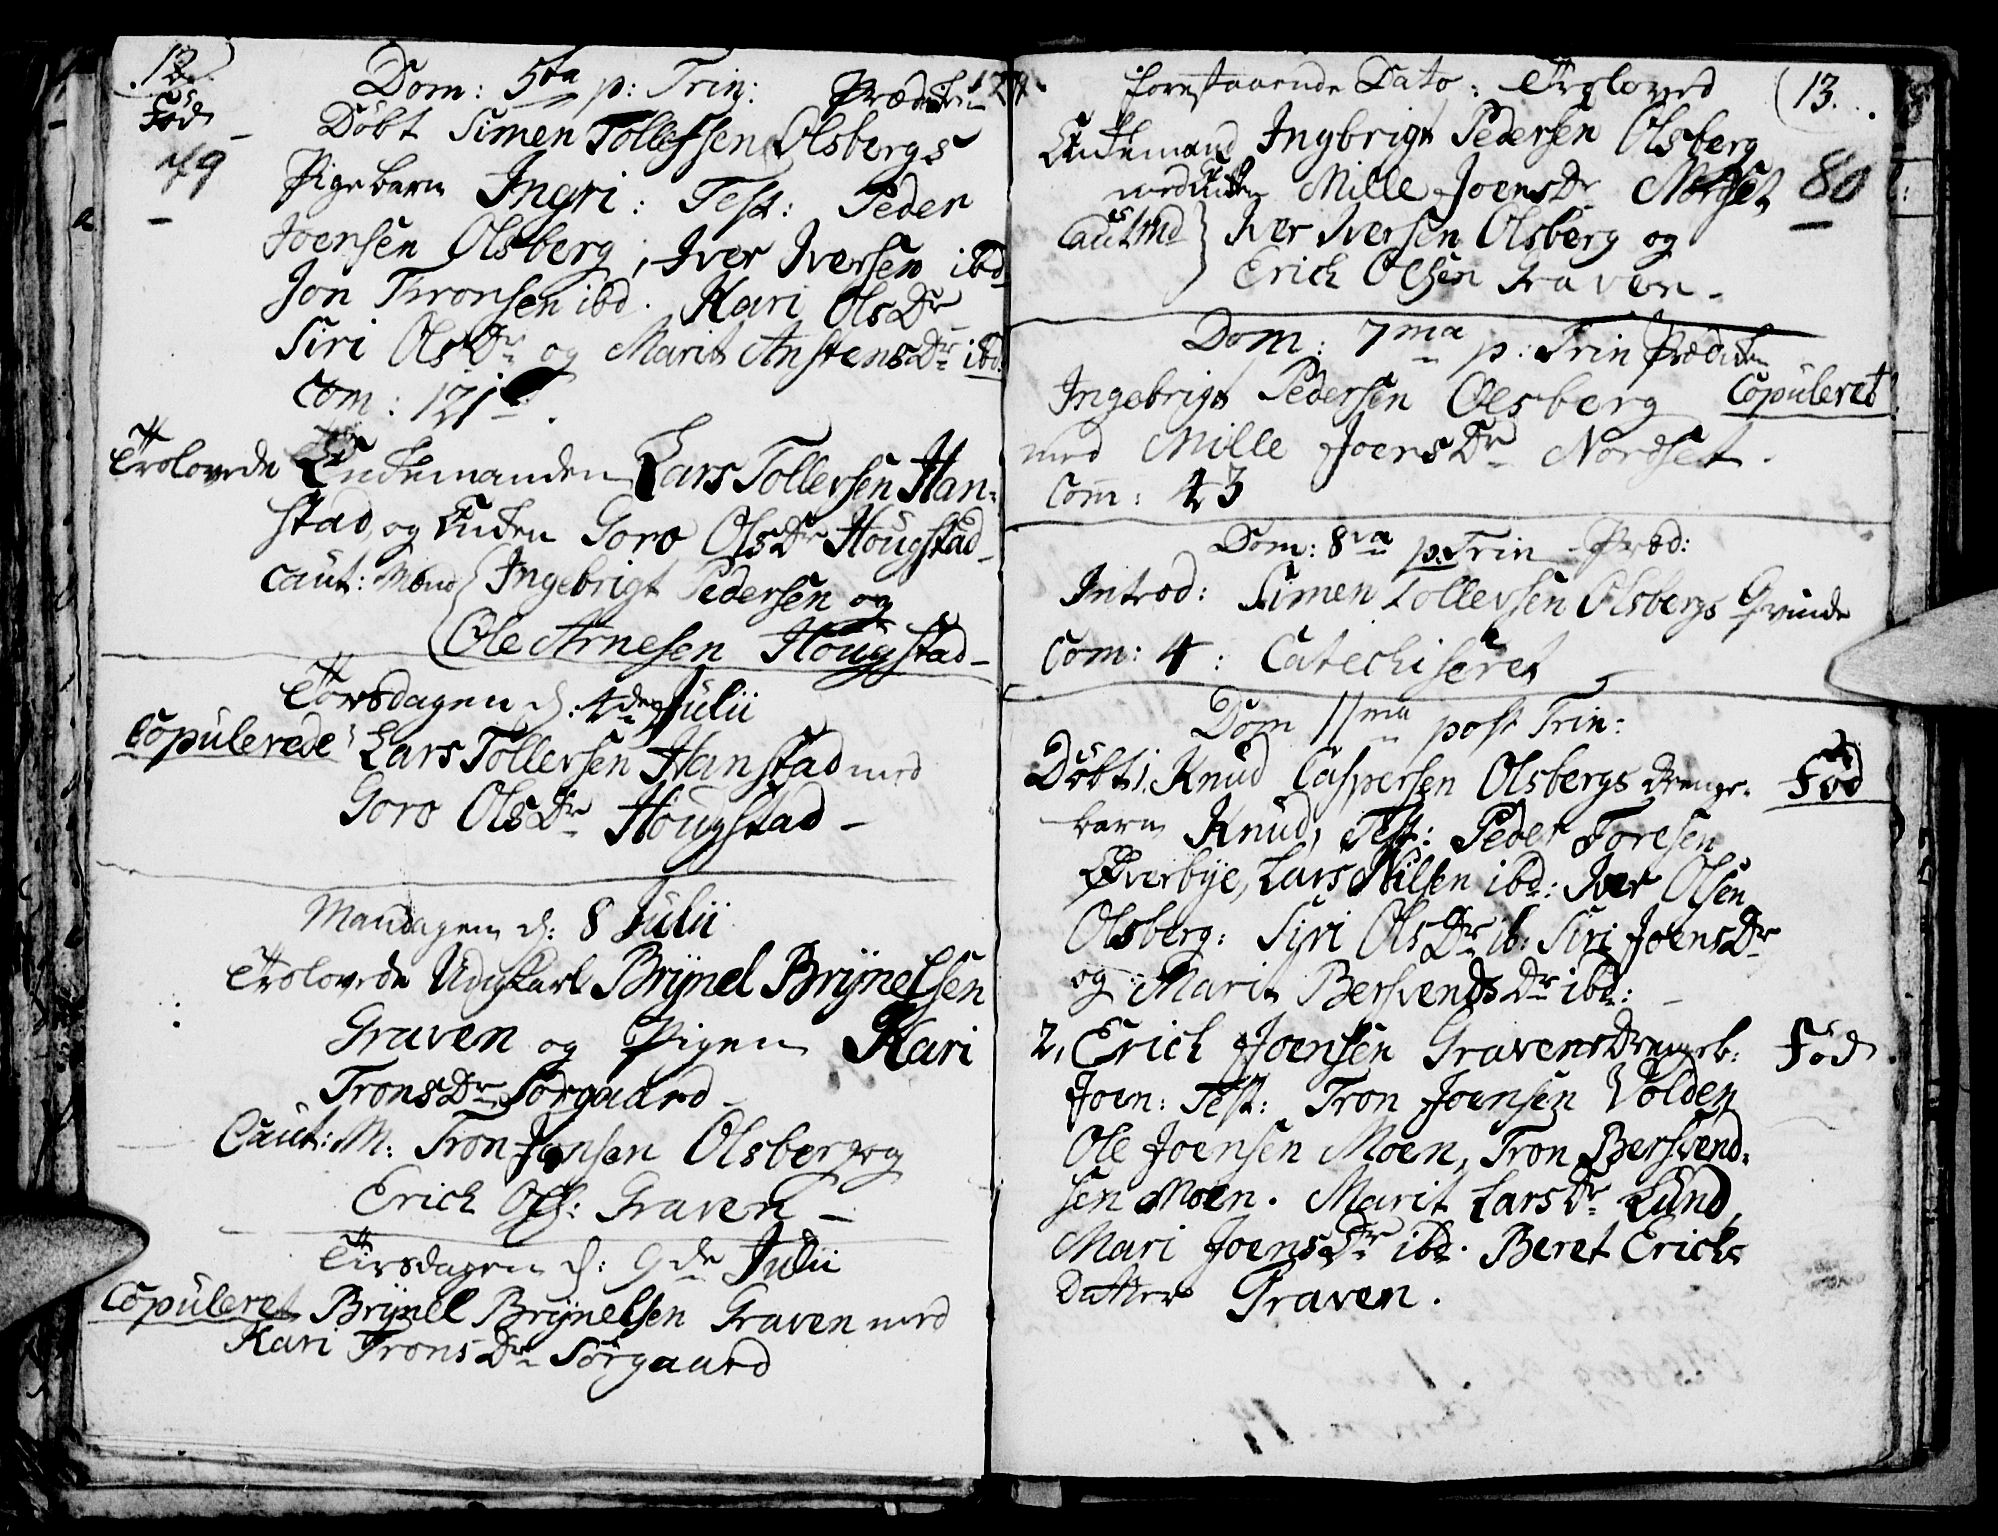 12.
Dom: 5ta p: Trin: Prædiken
Död
79
Döbt Simen Tollefsen Olsbergs
Pigebarn Ingri: Test: Peder
Joensen Olsberg, Iver Iversen ibd
Jon Tronsen ibd. Kari OlsDr
Siri OlsDr og Marit AnstensDr ibd:
Com: 121
Trolovede Enkemanden Lars Tollevsen Han-
stad, og Enken Goro OlsDr Höugstad
Caut: Mænd Ingebrigt Pedersen og
Ole Arnesen Höugstad
Torsdagen d: 4de Julii
Copulerede Lars Tollevsen Hanstad med
Goro OlsDr Höugstad
Mandagen d: 8 Julii
Trolovede Ungkarl Brÿnel Brÿnelsen
Graven og Pigen Kari
TronsDr Sörgaard
Caut: M: Tron Jonsen Olsberg og
Erich Ols: Graven
Tirsdagen d: 9de Julii
Copuleret Brÿnel Brÿnelsen Graven med
Kari TronsDr Sörgaard
13.
forestaaende Dato: Troloved
Enkemand Ingbrigt Pedersen Olsberg
med Enken Mille JoensDr Nordset
80
Cautmd Iver Iversen Olsberg og
Erich Olsen Graven
Dom: 7ma p: Trin Prædiken
Ingebrigt Pedersen Olsberg Copuleret
med Mille JoensDr Nordset.
Com: 43
Dom: 8va p: Trin Præd:
Introd: Simen Tollevsen Olsbergs Qvinde
Com: 4: Catechiseret
Dom 11ma post Trin:
Döbt 1. Knud Caspersen Olsbergs Drenge- Föd
barn Knud, Test: Peder Toresen
Øverbÿe, Lars Nilsen ibd: Iver Olsen
Olsberg: Siri OlsDr ib: Siri JoensDr
og Marit BersvendsDr ibd:
2, Erich Joensen Gravens Drengeb: Föd
Joen: Test: Tron Joensen Volden
Ole Joensen Moen, Tron Bersvend-
sen Moen. Marit LarsDr Lund,
Mari JoensDr ibd. Beret Erichs
Datter Graven.